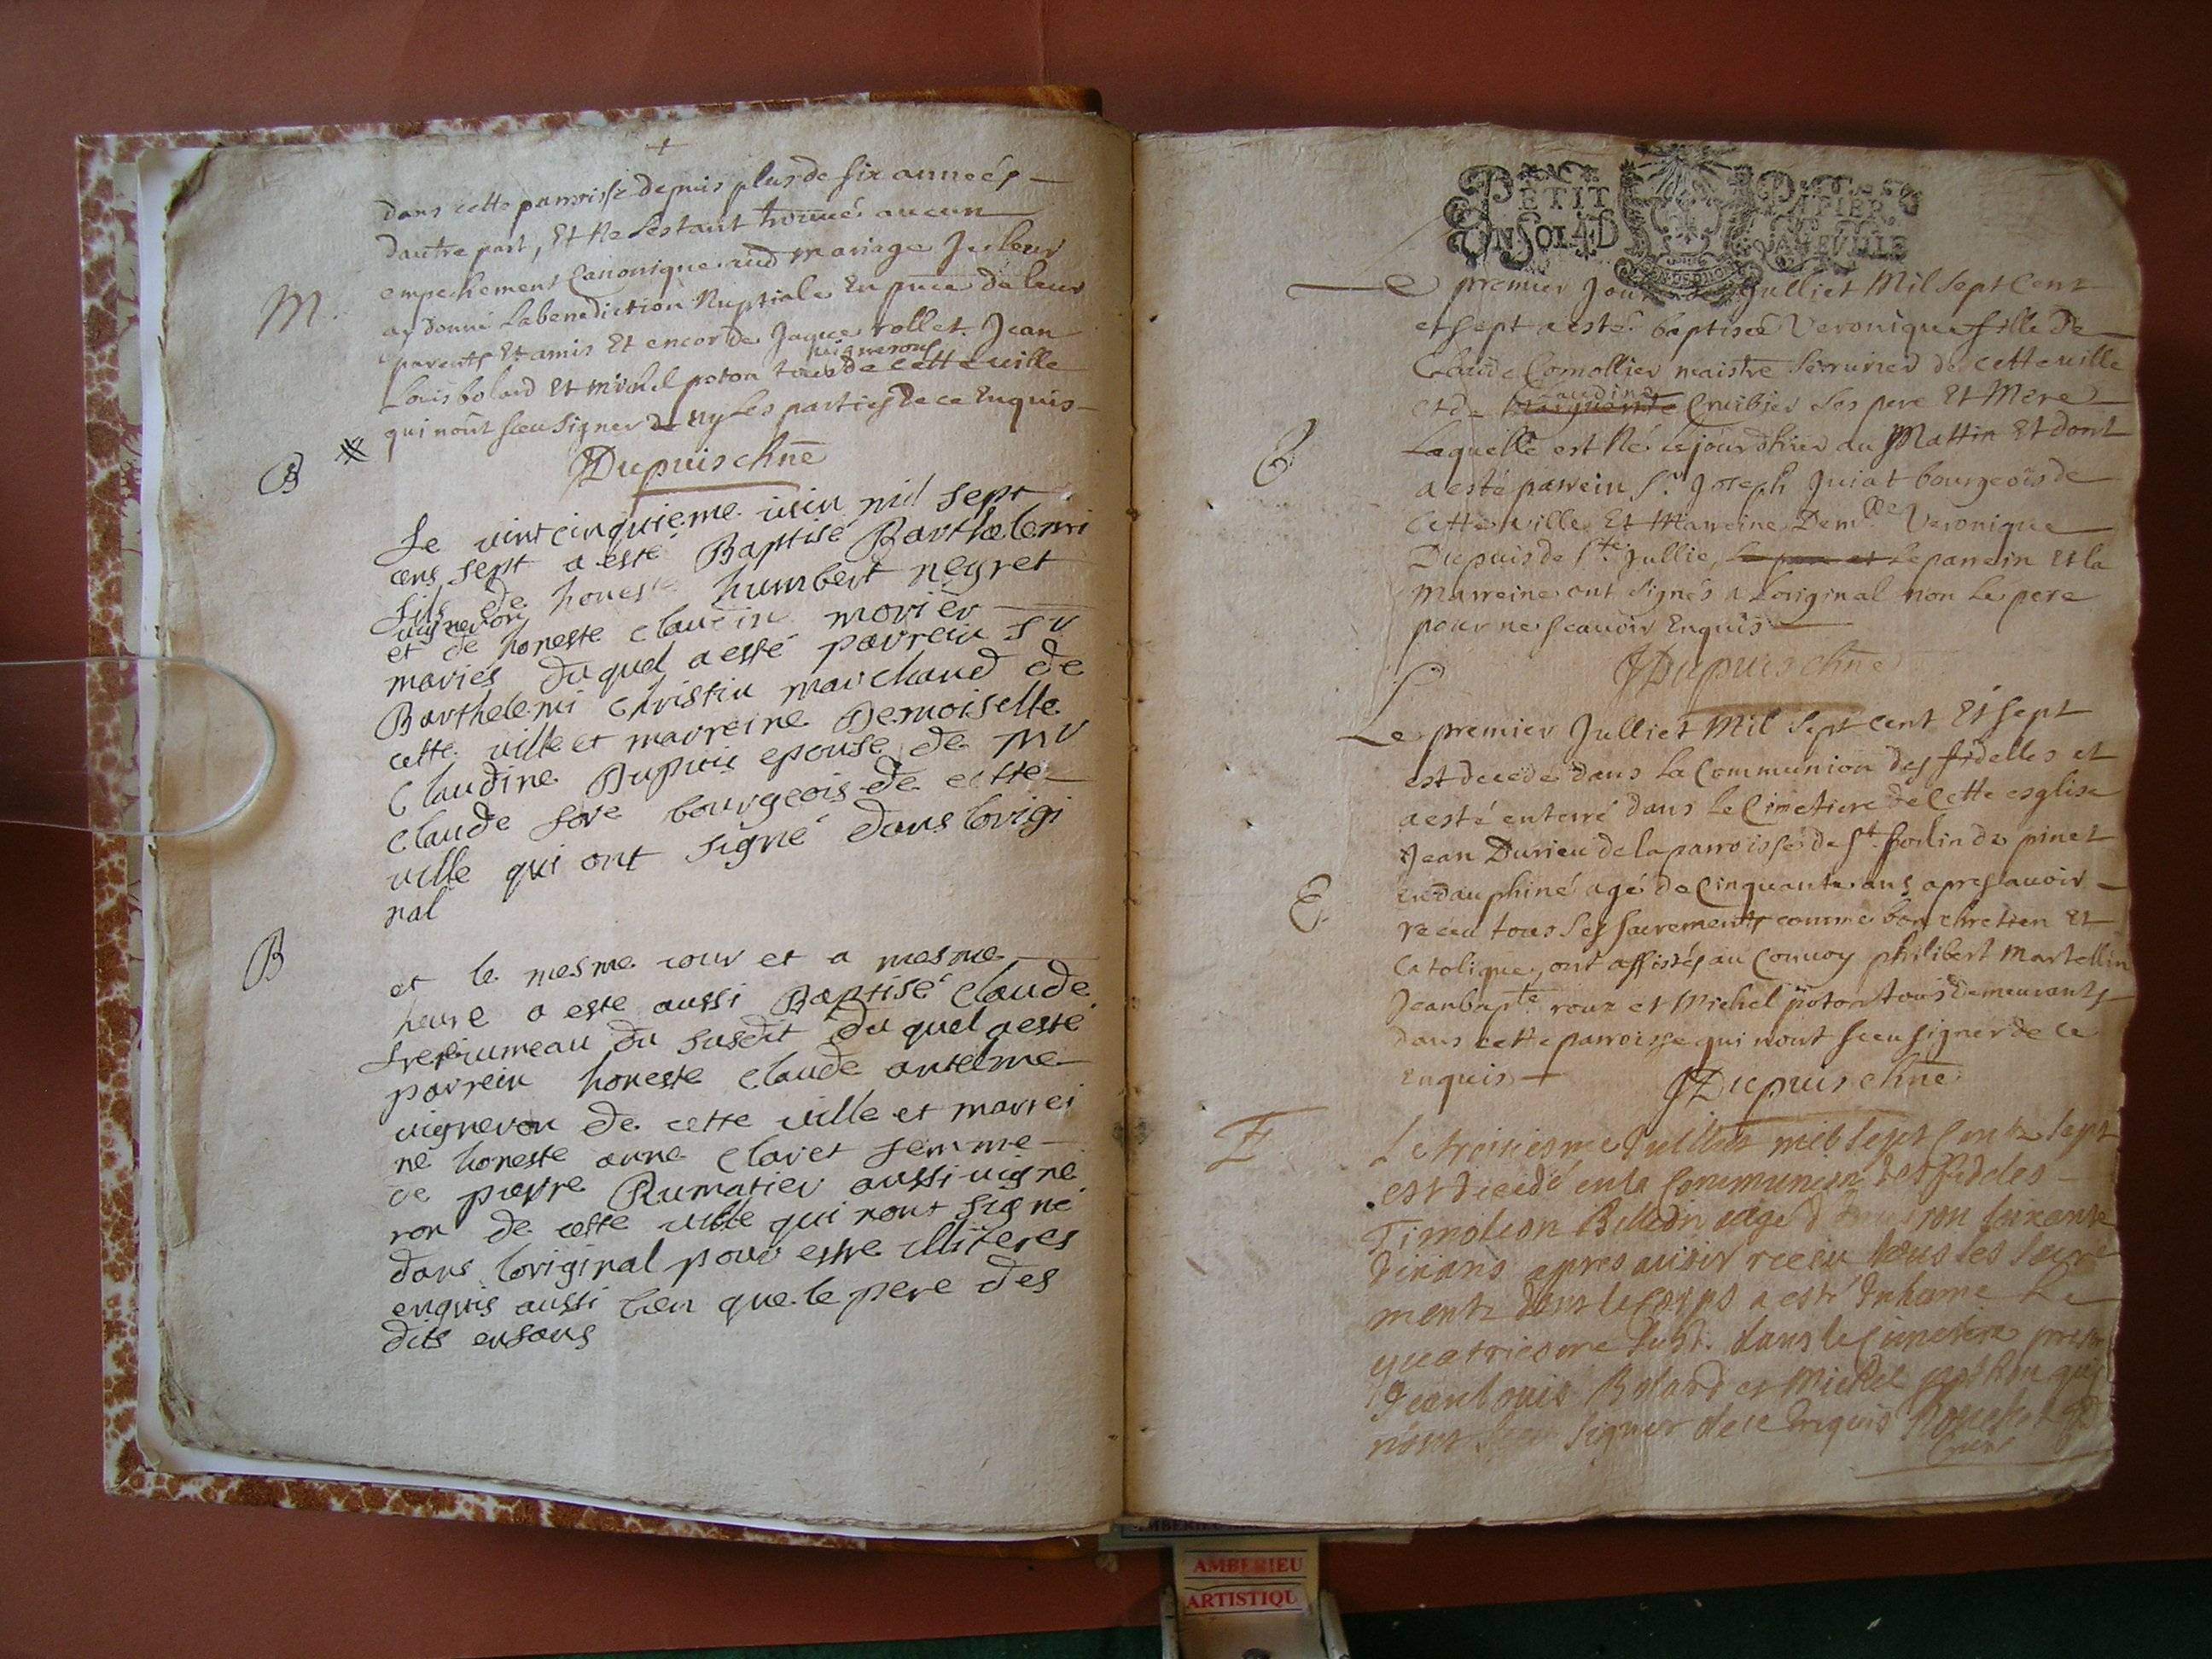 +
dans cette parroisse depuis plus de six années
dautre part, Et ne sestant trouué aucun
empechement Canonique aud mariage Je leur
M.
ay donné La benediction Nuptiale En pnce de leur
parents Et amis Et encor de Jaques rollet Jean
vignerons
Louis bolard Et michel poton tous de cette uille
qui nont sceu signer ny Les parties de ce Enquis
JDupuis chne
B
Le vint cinquieme iuin mil sept
cens sept a este Baptisé Barthelemi
fils de honeste humbert negret
vigneron
et de honeste claudin morier
mariés du quel a esté parrein sr
Barthelemi Christin marchand de
cette ville et marreine Demoiselle
Claudine Dupuis epouse de mr
Claude fore bourgeois de cette
ville qui ont signé dans lorigi
nal
B
et le mesme iour et a mesme
heure a este aussi Baptisé Claude
frere iumeau du susdit du quel a esté
parrein honeste Claude antelme
vigneron de cette ville et marrei
ne honeste anne Claret femme
de pierre Rumatier aussi vigne
ron de cette ville qui nont signé
dans loriginal pour estre illiteres
enquis aussi bien que le pere des
dits enfans
PETIT PAPIER
UN SOL 4 D LA FEUILLE
Le premier Jour Julliet Mil Sept Cent
et sept a esté baptisée Veronique fille de
Claude Comollier maistre Serrurier de cette uille
Claudine
et de Cruibier ses pere Et Mere
B
Laquelle est Né le jour dhier au Mattin Et dont
a esté parrein Sr Joseph Juiat bourgeois de
Cette uille Et Marreine Demlle Veronique
Dupuis de Ste Jullie, Le parrein Et la
Marreine ont signés a Loriginal non Le pere
pour ne scauoir Enquis
JDupuis chne
Le premier Julliet Mil Sept Cent Et sept
est decedé dans La Communion des fidelles et
a esté enterré dans Le Cimetiere de Cette esglise
Jean Durieu de la parroisse de St du pinet
E
en dauphiné agé de Cinquante ans apres auoir
receu tous ses sacrements comme bon chretien Et
Catolique, ont assistés au Conuoy philibert Martellin
Jean bapte roux et Michel poton tous demeurants
dans cette parroisse qui nont sceu signer de ce
enquis + JDupuis chne
E
Le troisiesme Julliet mil sept cent sept
est decedé en la Communion des fideles
Timoleon Billion agé soixante
dix ans apres auoir receu tous les sacre
ments dont le Corps a esté Inhumé Le
quatriesme dans le Cimetiere
Jean Louis Bolard et Michel qui
nont signer de ce Enquis
Curé
AMBERIEU
ARTISTIQU